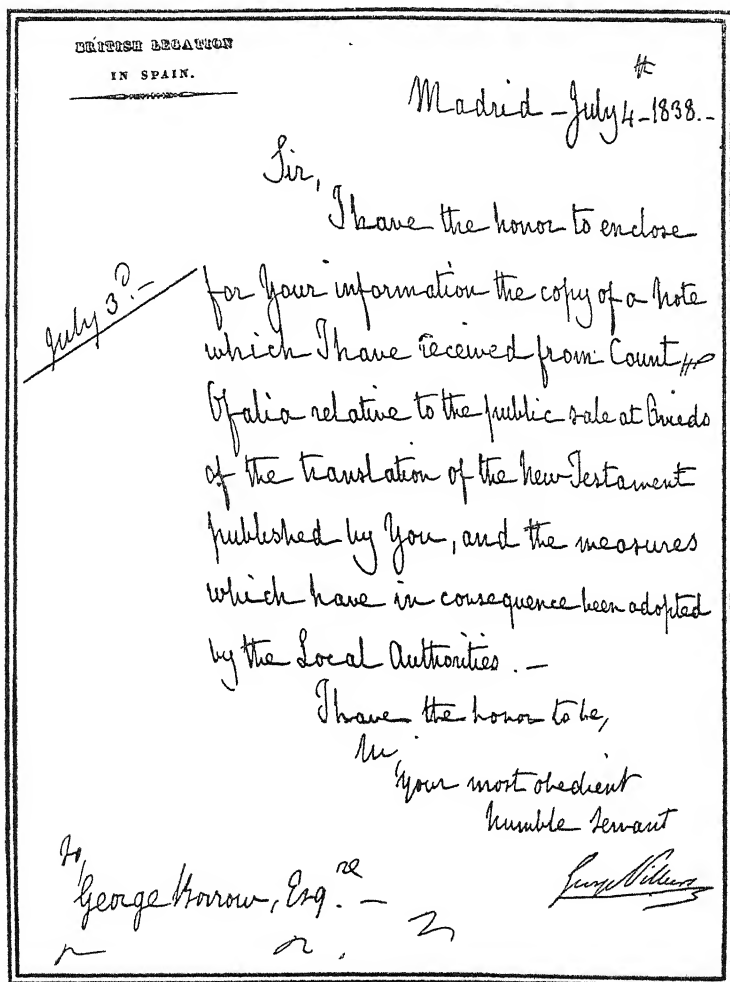 BRITISH LEGATION
IN SPAIN.
Madrid - July 4th - 1838.-
Sir,
I have the honor to enclose
July 3d.-
for Your information the copy of a Note
which I have received from Count
Ofalia relative to the public sale at Oviedo
of the translation of the New Testament
published by You, and the measures
which have in consequence been adopted
by the Local Authorities. -
I have the honor to be,
Sir,
Your most obedient
humble Servant
George Villiers
To,
George Borrow, Esqre. -